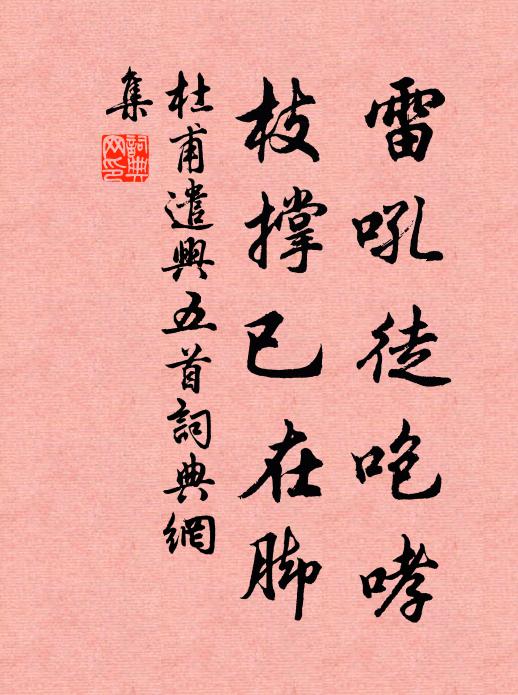 雷吼徒咆哮
枝撐已在脚
杜甫遣興五首詞典網
集
詞典網印